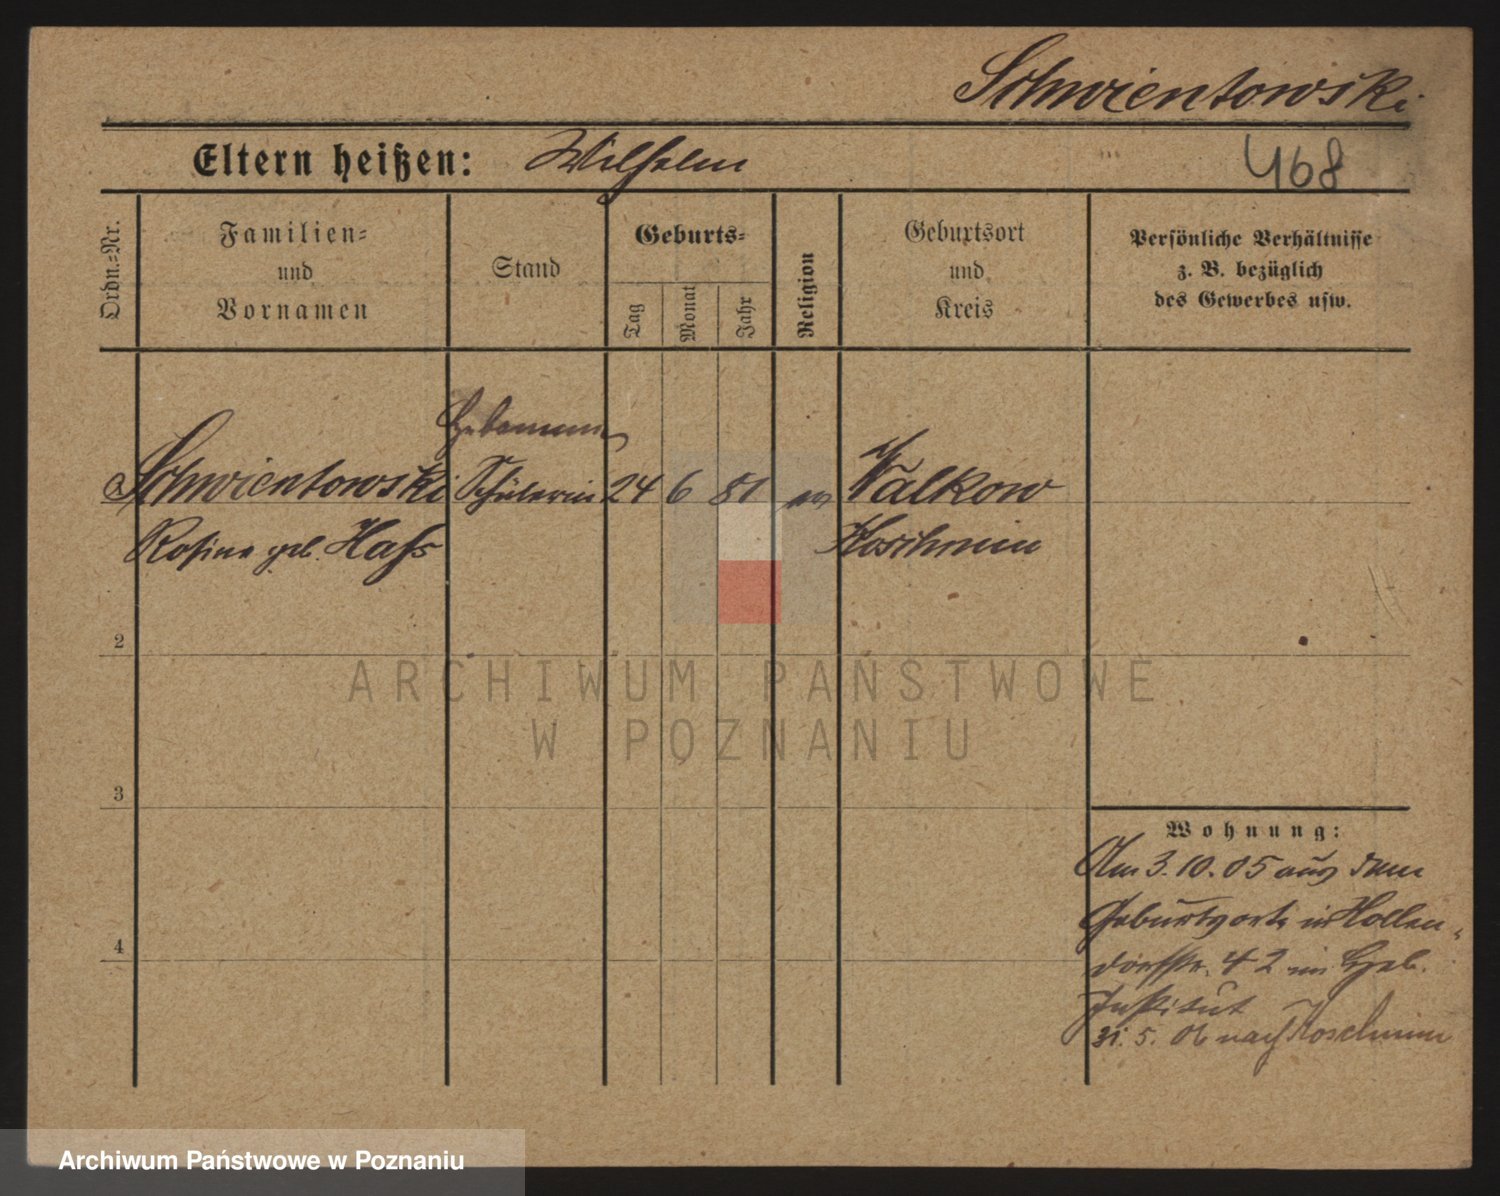 Schwientowski
Eltern heißen: Wilhelm
468
Ordn.-Nr.
Familien-
und
Vornamen
Stand
Geburts-
Tag
Monat
Jahr
Religion
Geburtsort
und
Kreis
Persönliche Verhältnisse
z. B. bezüglich
des Gewerbes usw.
Hebammen
Schwientowski Schülerin 24 6 81 ev Walkow
Rosine geb. Hass Koschmin
2
3
4
Wohnung:
Am 3.10.05 aus dem
Geburtsorte in Hollen-
dorfstr. 42 im Heb.
Institut
31. 5. 06 nach Koschmin
ARCHIWUM PAŃSTWOWE
W POZNANIU
Archiwum Państwowe w Poznaniu